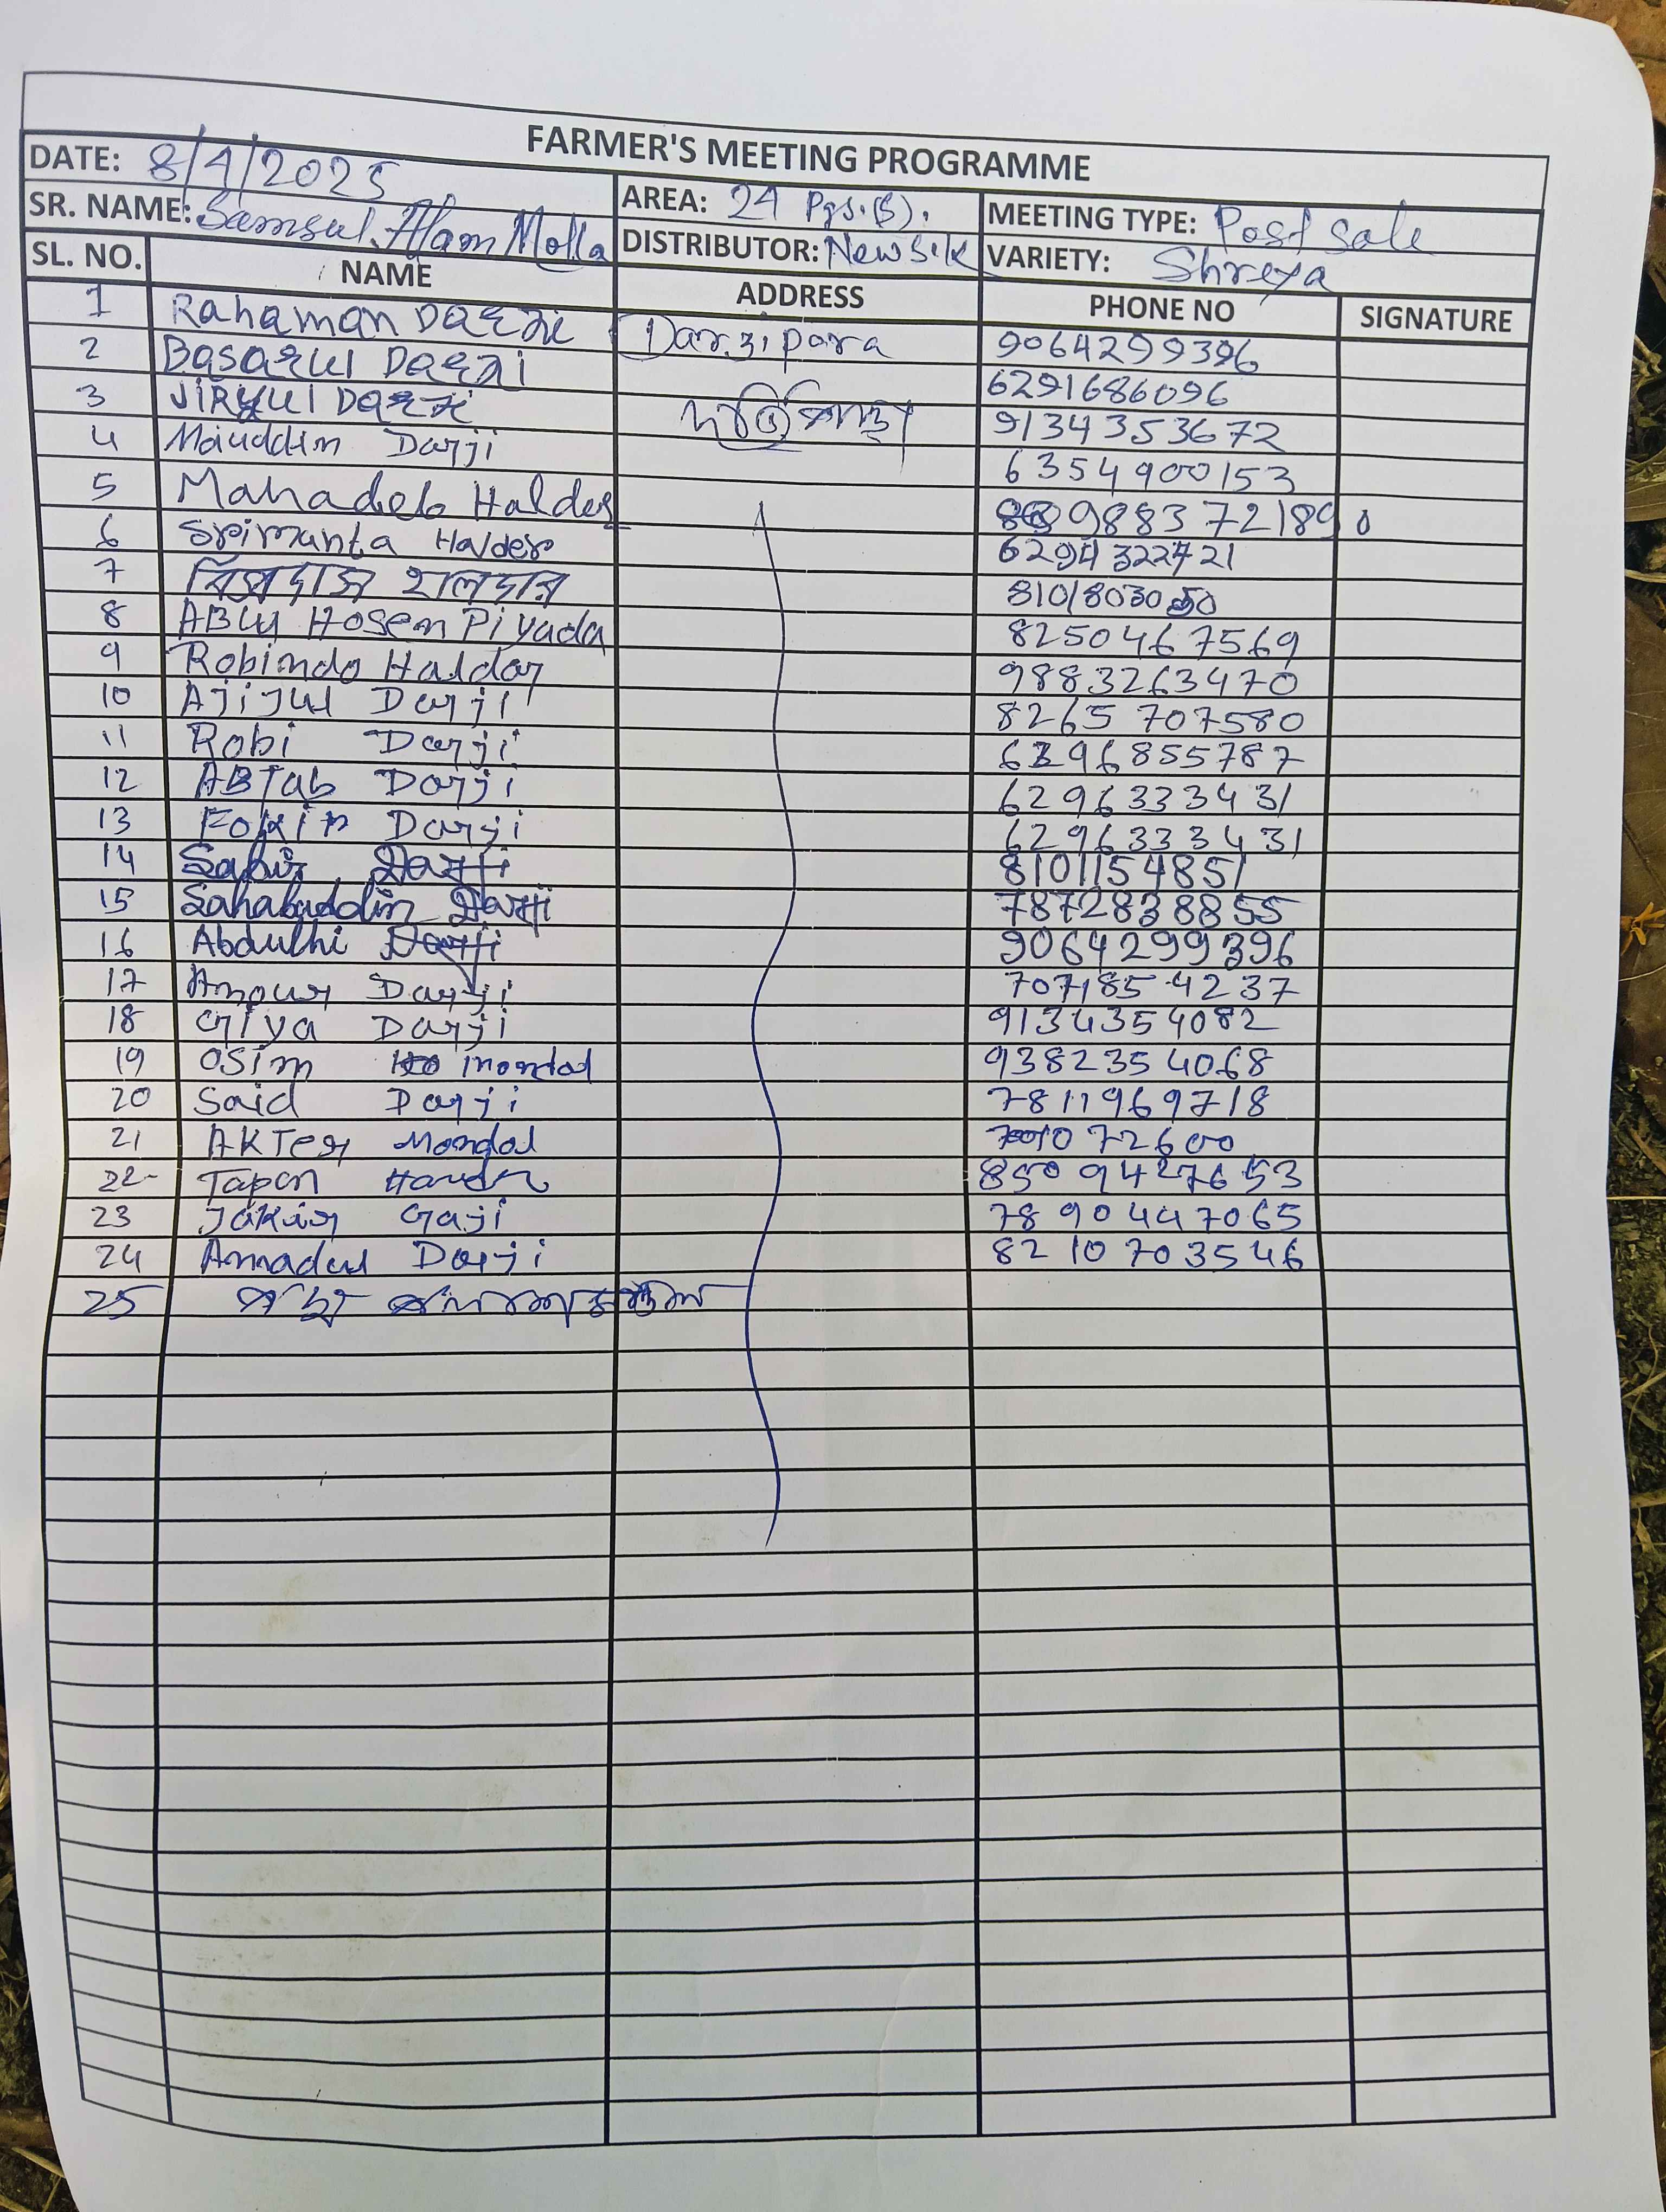 FARMER'S MEETING PROGRAMME
DATE: 8/4/2025 AREA: 24 Pgs.(S). MEETING TYPE: Post sale
SR. NAME: Samsul Alam Molla DISTRIBUTOR: New Silk VARIETY: Shreya
SL. NO. NAME ADDRESS PHONE NO SIGNATURE
1 Rahaman Darzi Darzipara 9064299396
2 Basarul Darzi 6291686096
3 Darzi 9134353672
4 Maiuddin Darji 6354900153
5 Mahadeb Halder 9883721890
6 Srimanta Halder
7 হালদার
8 ABU Hosen Piyada 8250467569
9 Robindo Haldar 9883263470
10 Ajijul Darji 8265707580
11 Robi Darji 6296855787
12 ABTab Darji 6296333431
13 Fokir Darji 6296333431
14 Sabir Darji 8101154851
15 Sahabuddin Darji 7872838855
16 Abdulhi Darji 9064299396
17 Anour Darji 7071854237
18 Giya Darji 9134354082
19 Osim mondal 9382354068
20 Said Darji 7811969718
21 AKTer Mondal
22 Tapan 8509427653
23 Jakir Gaji 7890447065
24 Amadul Darji 8210703546
25